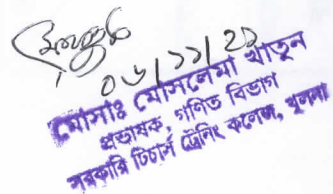 ০৬/১১/২১
মোসাঃ মোসলেমা খাতুন
প্রভাষক, গণিত বিভাগ
সরকারি টিচার্স ট্রেনিং কলেজ, খুলনা